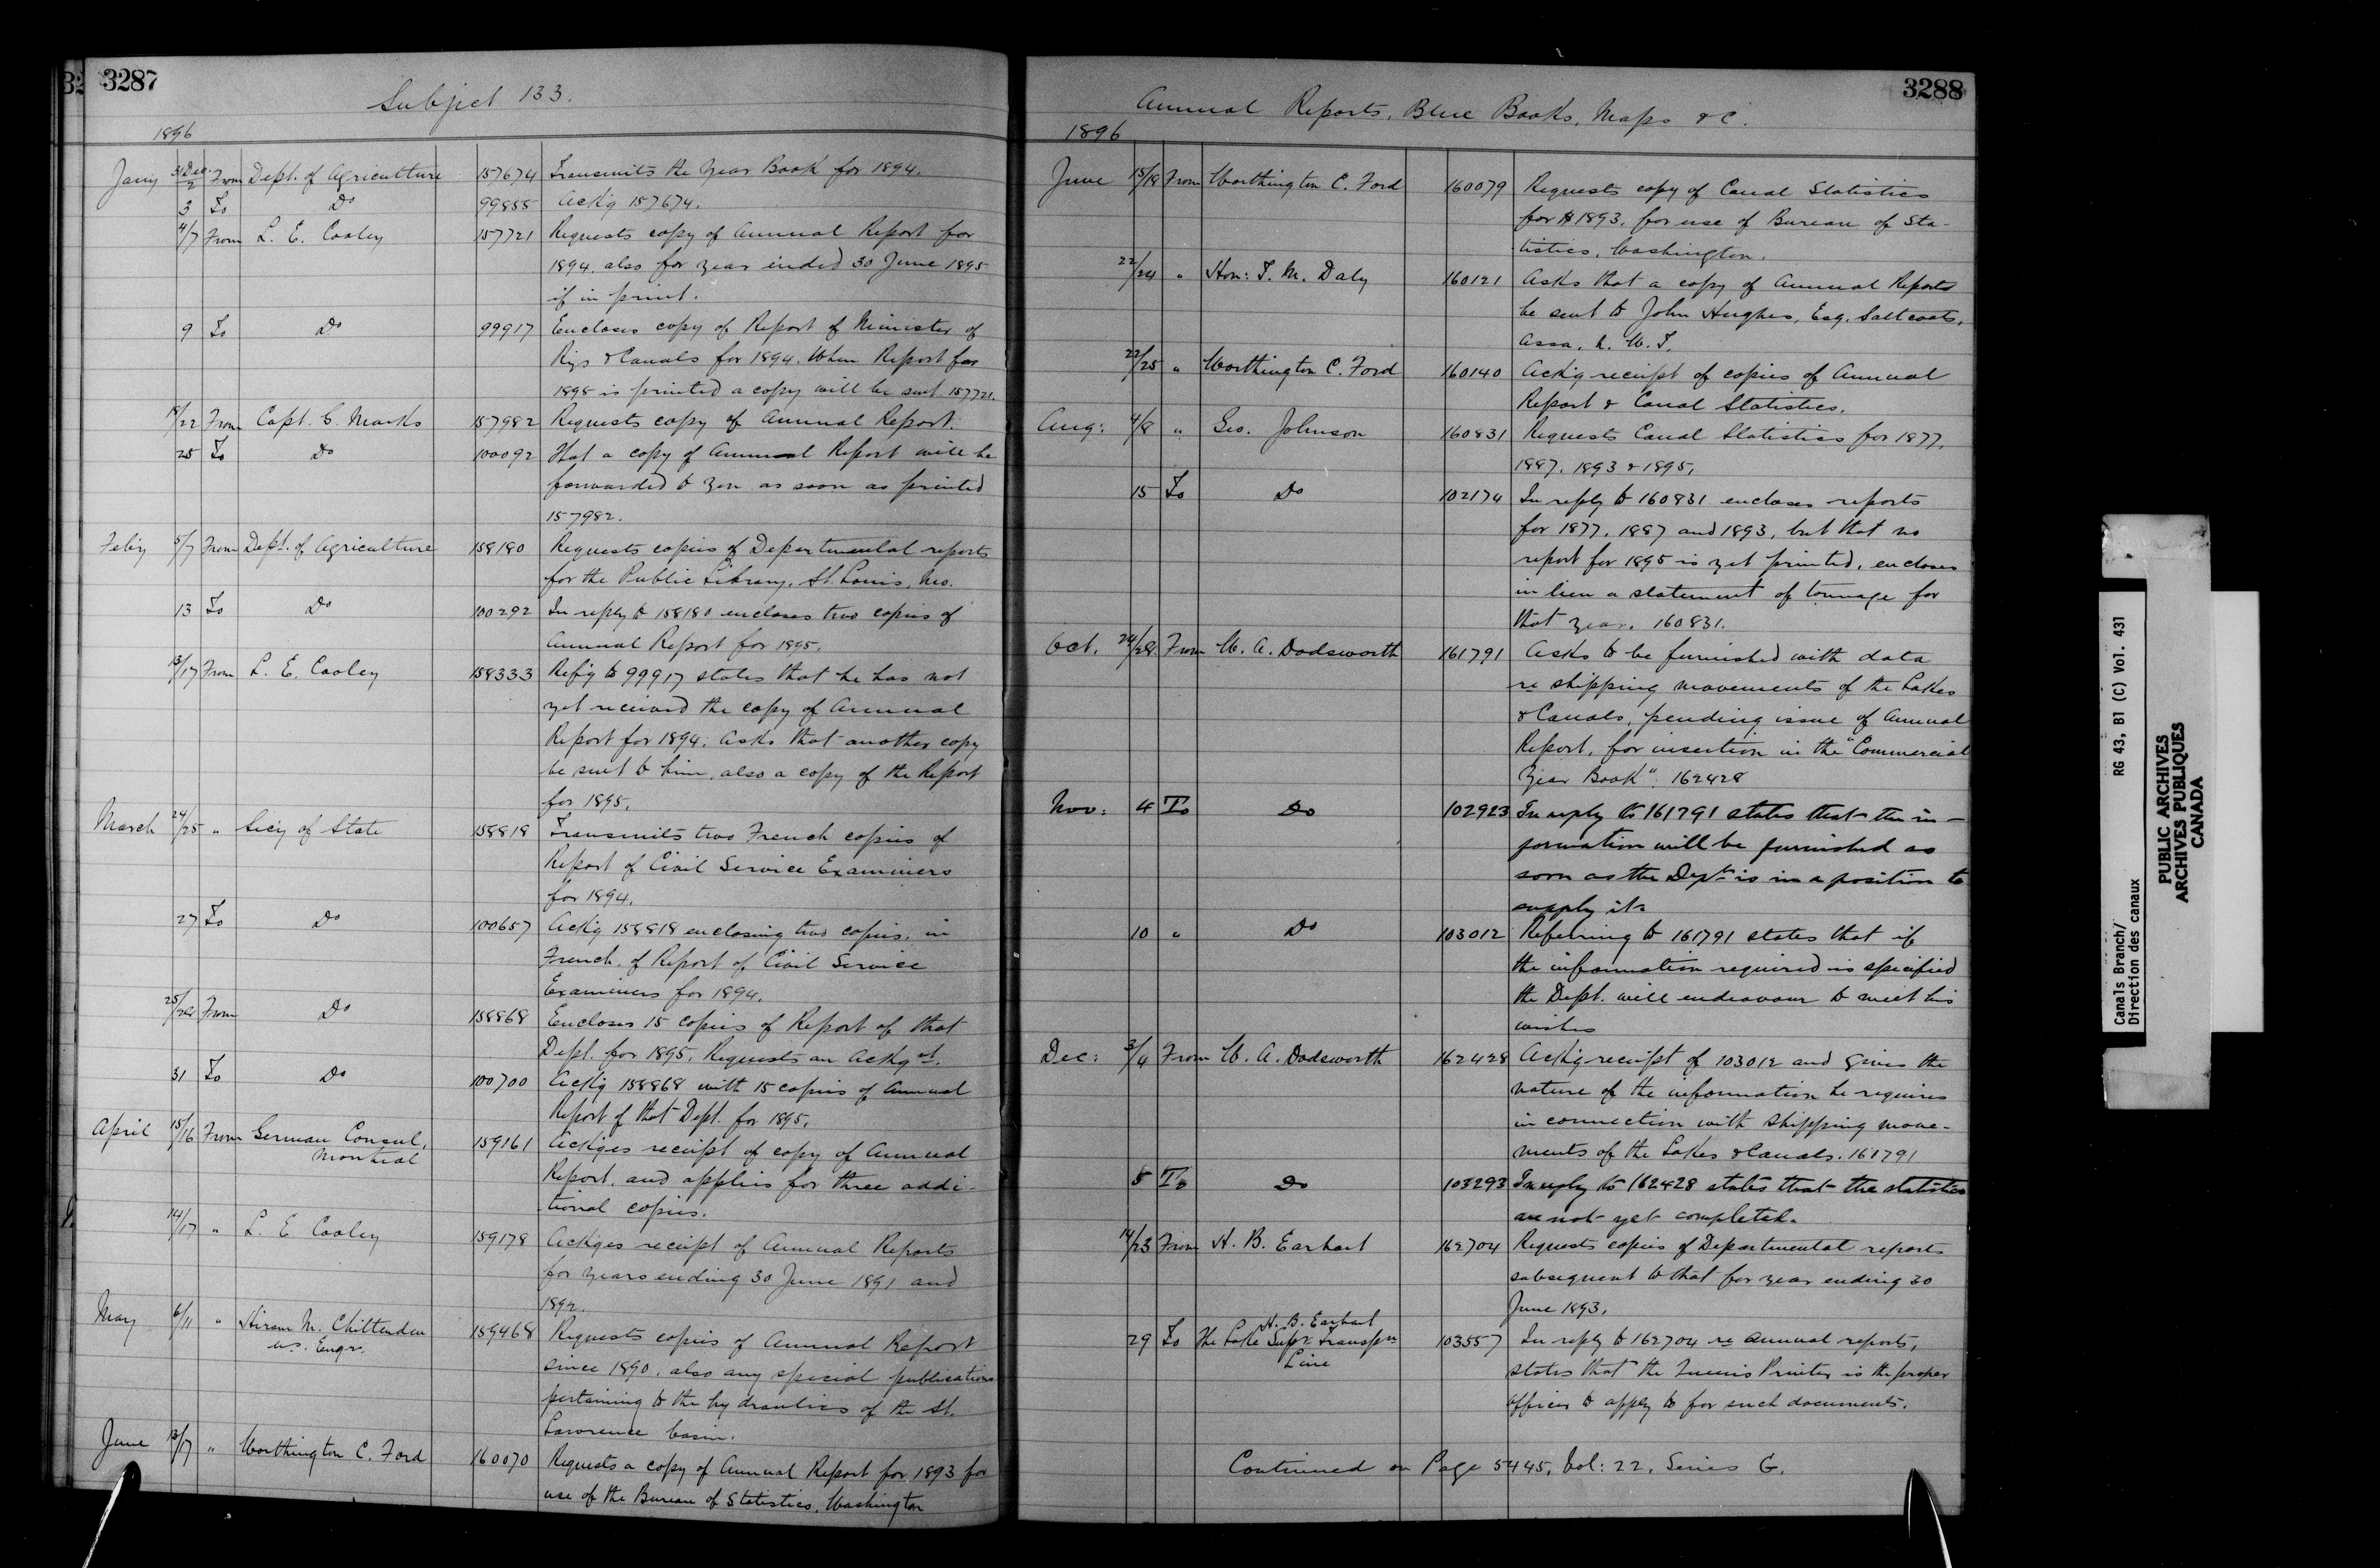 3287
Subject 133.
1896
Jany 31 Dec/2 From Dept. of Agriculture 157674 Transmits the Year Book for 1894.
3 To Do 99855 Ackg 157674.
4/7 From L. E. Cooley 157721 Requests copy of Annual Report for
1894. also for year ended 30 June 1895
if in print.
9 To Do 99917 Encloses copy of Report of Minister of
Rys & Canals for 1894. When Report for
1895 is printed a copy will be sent 157721.
18/22 From Capt. C. Marks 157982 Requests copy of Annual Report.
25 To Do 100092 That a copy of Annual Report will be
forwarded to you as soon as printed
157982.
Feby 5/7 From Dept. of Agriculture 158180 Requests copies of Departmental reports
for the Public Library, St. Louis, Mo.
13 To Do 100292 In reply to 158180 encloses two copies of
Annual Report for 1895.
13/17 From L. E. Cooley 158333 Refg to 99917 states that he has not
yet received the copy of Annual
Report for 1894. Asks that another copy
be sent to him, also a copy of the Report
for 1895.
March 24/25 " Secy of State 158818 Transmits two French copies of
Report of Civil Service Examiners
for 1894.
27 To Do 100657 Ackg 158818 enclosing two copies, in
French, of Report of Civil Service
Examiners for 1894.
25/28 From Do 158868 Encloses 15 copies of Report of that
Dept. for 1895. Requests an Ackgmt.
31 To Do 100700 Ackg 158868 with 15 copies of Annual
Report of that Dept. for 1895.
April 15/16 From German Consul, 159161 Ackges receipt of copy of Annual
Montreal
Report, and applies for three addi-
tional copies.
14/17 " L. E Cooley 159178 Ackges receipt of Annual Reports
for years ending 30 June 1891 and
1892.
May 6/11 " Hiram M. Chittenden 159468 Requests copies of Annual Report
U.S. Engr.
since 1890, also any special publications
pertaining to the hydraulics of the St.
Lawrence basin.
June 13/17 " Worthington C. Ford 160070 Requests a copy of Annual Report for 1893 for
use of the Bureau of Statistics, Washington
3288
Annual Reports, Blue Books, Maps &c.
1896
June 15/18 From Worthington C. Ford 160079 Requests copy of Canal Statistics
for 1893, for use of Bureau of Sta-
tistics, Washington.
22/24 " Hon: T. M. Daly 160121 Asks that a copy of Annual Reports
be sent to John Hughes, Esq. Saltcoats,
Assa. N. W. T.
22/25 " Worthington C. Ford 160140 Ackg receipt of copies of Annual
Report & Canal Statistics.
Aug: 4/8 " Geo. Johnson 160831 Requests Canal Statistics for 1877,
1887, 1893 & 1895.
15 To Do 102174 In reply to 160831 encloses reports
for 1877, 1887 and 1893, but that no
report for 1895 is yet printed, encloses
in lieu a statement of tonnage for
that year. 160831.
Oct. 24/28 From W. A. Dodsworth 161791 Asks to be furnished with data
re shipping movements of the Lakes
& Canals, pending issue of Annual
Report, for insertion in the "Commercial
Year Book". 162428
Nov: 4 To Do 102923 In reply to 161791 states that the in-
formation will be furnished as
soon as the Dept is in a position to
supply it.
10 " Do 103012 Referring to 161791 states that if
the information required is specified
the Dept. will endeavour to meet his
wishes
Dec: 3/4 From W. A. Dodsworth 162428 Ackg receipt of 103012 and gives the
nature of the information he requires
in connection with shipping move-
ments of the Lakes & Canals. 161791
5 To Do 103293 In reply to 162428 states that the statistics
are not yet completed.
14/23 From H. B. Earhart 162704 Requests copies of Departmental reports
subsequent to that for year ending 30
June 1893.
H. B. Earhart
29 To The Lake Supr. Transpn 103557 In reply to 162704 re annual reports,
Line
states that the Queens Printer is the proper
officer to apply to for such documents.
Continued on Page 5445, Vol: 22, Series G.
Canals Branch/ RG 43, B1 (C) Vol. 431
Direction des canaux
PUBLIC ARCHIVES
ARCHIVES PUBLIQUES
CANADA